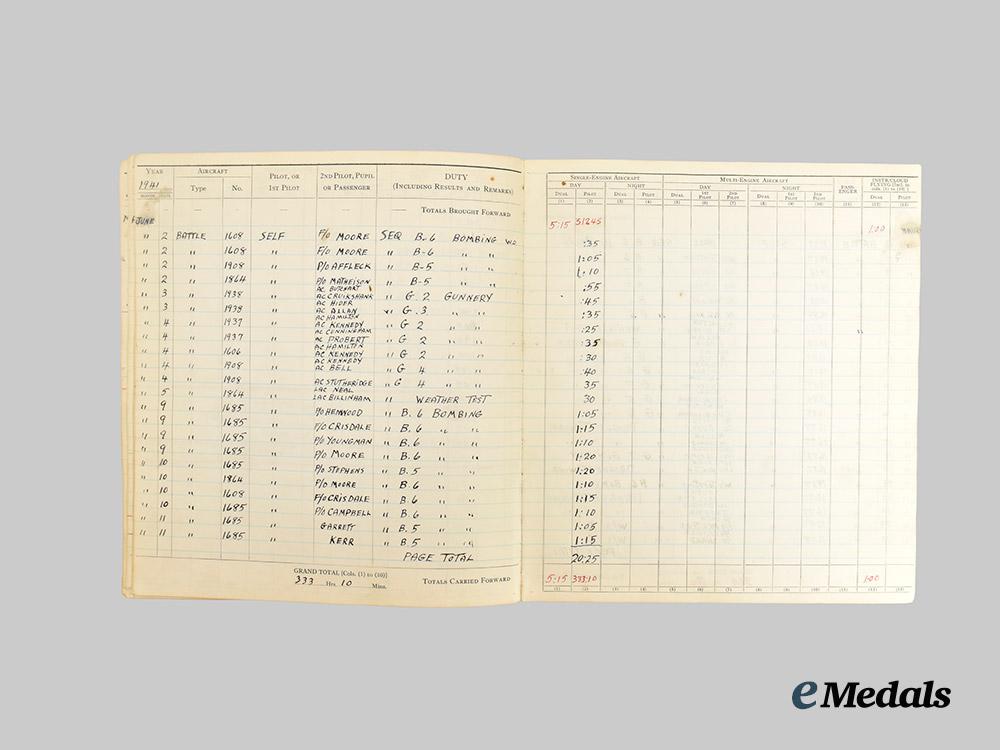 YEAR AIRCRAFT PILOT, OR 1ST PILOT 2ND PILOT, PUPIL OR PASSENGER DUTY (INCLUDING RESULTS AND REMARKS) SINGLE-ENGINE AIRCRAFT MULTI-ENGINE AIRCRAFT PASS-ENGER
1941 Type No. DAY NIGHT DAY NIGHT
MONTH DUAL PILOT DUAL PILOT DUAL 1ST PILOT 2ND PILOT DUAL 1ST PILOT 2ND PILOT DUAL PILOT
(1) (2) (3) (4) (5) (6) (7) (8) (9) (10) (11) (12) (13)
— — — — — TOTALS BROUGHT FORWARD 5:15 312:45 1:00
JUNE
" 2 BATTLE 1608 SELF F/O MOORE SEQ B-6 BOMBING :35
" 2 " 1608 " F/O MOORE " B-6 " " 1:05
" 2 " 1908 " P/O AFFLECK " B-5 " " 1:10
" 2 " 1864 " P/O MATHEISON " B-5 " " :55
" 3 " 1938 " AC BURNART AC CRUIKSHANK " G. 2 GUNNERY :45
" 3 " 1938 " AC HIDER AC ALLAN " G. 3 " " :35
" 4 " 1937 " AC HAMILTON AC KENNEDY " G 2 " " :25
" 4 " 1937 " AC CUNNINGHAM AC PROBERT " G 2 " " :35
" 4 " 1606 " AC HAMILTON AC KENNEDY " G 2 " " :30
" 4 " 1908 " AC KENNEDY AC BELL " G 4 " " :40
" 4 " 1908 " AC STUTHERIDGE " G 4 " " 35
" 5 " 1864 " LAC NEAL LAC BILLINHAM " WEATHER TEST 30
" 9 " 1685 " HENWOOD " B. 6 BOMBING 1:05
" 9 " 1685 " F/O CRISDALE " B. 6 " " 1:15
" 9 " 1685 " P/O YOUNGMAN " B. 6 " " 1:10
" 9 " 1685 " P/O MOORE " B. 6 " " 1:20
" 10 " 1685 " P/O STEPHENS " B. 5 " " 1:20
" 10 " 1864 " F/O MOORE " B. 6 " " 1:10
" 10 " 1608 " F/O CRISDALE " B. 6 " " 1:15
" 10 " 1685 " P/O CAMPBELL " B. 6 " " 1:10
" 11 " 1685 " GARRETT " B. 5 " " 1:05
" 11 " 1685 " KERR " B. 5 " " 1:15
PAGE TOTAL 20:25
GRAND TOTAL [Cols. (1) to (10)]
333 Hrs. 10 Mins. TOTALS CARRIED FORWARD 5:15 333:10 1:00
(1) (2) (3) (4) (5) (6) (7) (8) (9) (10) (11) (12) (13)
eMedals